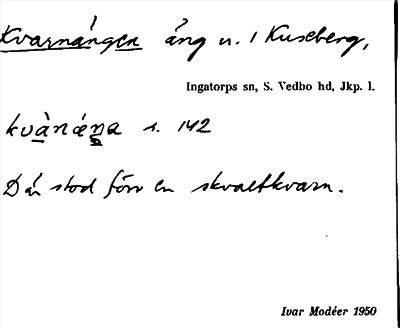 Kvarnängen äng u. 1 Kuseberg,
Ingatorps sn, S. Vedbo hd, Jkp. l.
kvànáŋa s. 142
Där stod förr en skvaltkvarn.
Ivar Modéer 1950